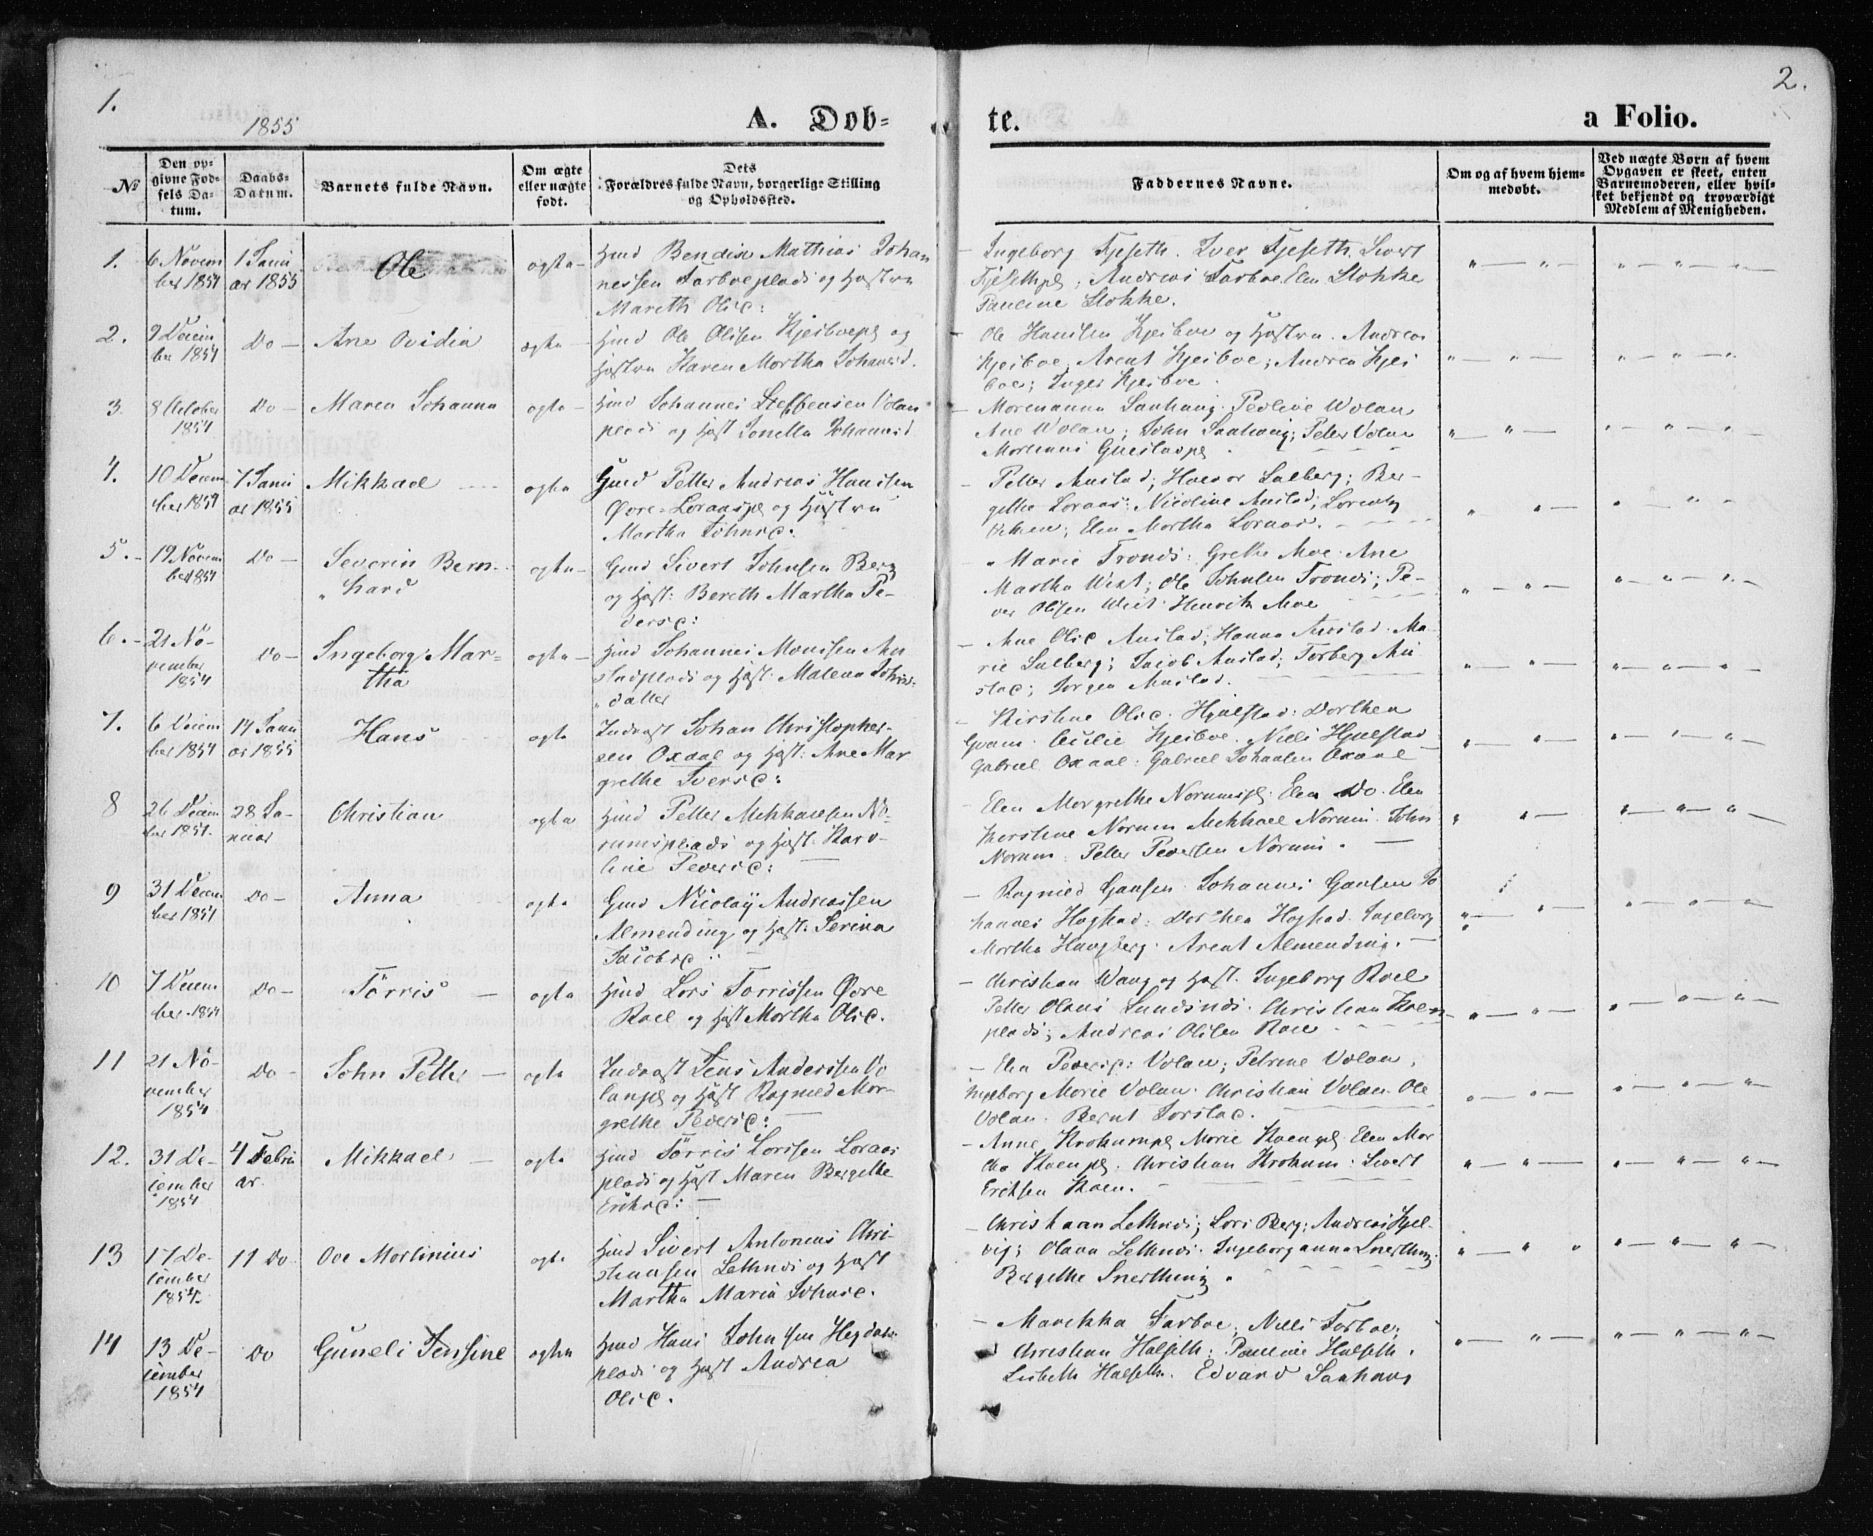 1.
2.
1855
A. Døb-
te.
a Folio.
№
Den op-
givne Fød-
sels Da-
tum.
Daabs-
Datum.
Barnets fulde Navn.
Om ægte
eller uægte
født.
Dets
Forældres fulde Navn, borgerlige Stilling
og Opholdssted.
Faddernes Navne.
Om og af hvem hjem-
medøbt.
Ved uægte Børn af hvem
Opgaven er skeet, enten
Barnemoderen, eller hvil-
ket bekjendt og troværdigt
Medlem af Menigheden.
1.
6 Novem
ber 1854
1 Janu
ar 1855
Ole
ægte
Huusd Bendix Mathias Johan
nessen Farboeplads og Hustru
Mareth Olsd:
Ingeborg Fjeseth. Iver Fjeseth. Sivert
Fjesethpl; Andreas Farboe Elen Stokke
Pauline Stokke.
2.
9 Decem
ber 1854
Do
Ane Ovidia
ægte
Huusd Ole Olsen Kjesboepl og
Hustru Karen Martha Johansd.
Ole Hansen Kjesboe og Hustru. Andreas
Kjesboe. Arent Kjesboe; Andrea Kjes
boe; Inger Kjesboe.
3.
8 October
1854
Do
Maren Johanna
ægte
Huusd Johannes Steffensen Volan
plads og Hust Jonetta Johannesd
Morenanna Sanhaug. Pauline Wolan
Ane Wolan; John Sanhaug; Peter Volan
4.
10 Decem
ber 1854
7 Janu
ar 1855
Mikkael
ægte
Gmd Petter Andreas Hansen
Øvre-Loraaspl og Hustru
Martha Johnsd:
Petter Austad; Haavor Salberg; Ber-
gethe Loraas; Nicoline Austad;
Elen Martha Loraas.
5.
19 Novem
ber 1854
Do
Severin Bern-
hard
ægte
Gmd Sivert Johnsen Berg
og Hust: Bereth Martha Pe-
dersd:
Marie Tronds: Grethe Moe. Ane
Martha Wist; Ole Johnsen Tronds; Pe-
der Olsen Wist. Henrik Moe
6.
21 No-
vember
1854
Do
Ingeborg Mar-
tha
ægte
Huusd Johannes Monssen Au
stadplads og Hust: Malena Johns-
datter
Ane Olsd Austad; Hanna Austad. Ma-
rie Salberg; Jacob Austad; Torberg Au
stad; Jørgen Austad.
7.
6 Decem
ber 1854
14 Janu
ar 1855
Hans
ægte
Inderst Johan Christopher-
sen Oxaal og Hust: Ane Mar
grethe Iversd:
Kirstine Olsd. Hjulstad: Dorthea
Gram. Cecilie Kjesboe. Niels Hjulstad
Gabriel Oxaal: Gabriel Johansen Oxaal
8
26 Decem
ber 1854.
28 Ja-
nuar
Christian
ægte
Huusd Petter Mikkaelsen No-
rumsplads og Hust: Karo-
line Pedersd:
Elen Margrethe Norumspl. Elen Do. Elen
Kerstine Norum Mikkael Norum. John
Norum: Petter Pedersen Norum.
9
31 Decem
ber 1854
Do
Anna
ægte
Gmd Nicolay Andreassen
Almending og Hust: Serina
Jacobsd:
Ragnild Gausen. Johannes Gausen Jo
hannes Hogstad. Dorthea Hogstad. Ingeborg
Martha Haugberg. Arent Almending.
10
7 Decem
ber. 1854
Do
Tørris
ægte
Huusd Lars Torrissen Øvre
Roel og Hust Martha Olsd.
Christian Wang og Hust. Ingeborg Roel
Petter Olaus Sundsnæs. Christian Koen
plads; Andreas Olsen Roel
11
21 No-
vember
1854
Do
John Petter
ægte
Inderst Jens Anderssen Vo
lanpl og Hust Ragnild Mar-
grethe Pedersd:
Ida Pedersd: Volan; Petrine Volan,
Ingeborg Marie Volan. Christian Volan. Ole
Volan. Bernt Sørstad.
12.
31 De-
cember
1854
4 Febru
ar.
Mikkael
ægte
Huusd Tørris Larssen Loraas
plads og Hust Maren Bergethe
Eriksd:
Anne Krokumpl. Marie Koenpl. Elen Mar
tha Koenpl. Christian Krokum: Sivert
Eriksen Koen.
13
17 De-
cember
1854.
11 Do
Ove Martinius
ægte
Huusd Sivert Antonius Chri-
stiansen Letnæs og Hust
Martha Maria Johnsd.
Christian Letnæs; Lars Berg; Andreas Hjel-
vig; Olava Letnæs. Ingeborganna Snerthing
Bergethe Snerthing.
14
13 De-
cember
1854
Do
Guneli Jensine
ægte
Huusd Hans Johnsen Hegdahls
plads og Hust Andrea
Olsd.
Marekka Farboe; Niels Farboe;
Christian Halseth; Pauline Halseth.
Lisbeth Halseth. Edvard Sanhaug